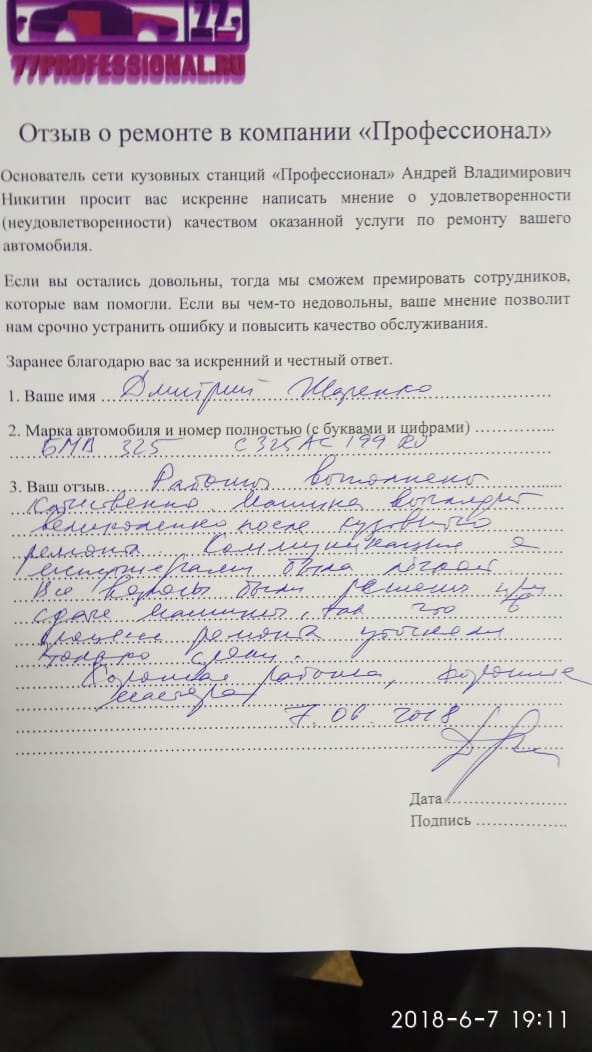 77
77PROFESSIONAL.RU
Отзыв о ремонте в компании «Профессионал»
Основатель сети кузовных станций «Профессионал» Андрей Владимирович
Никитин просит вас искренне написать мнение о удовлетворенности
(неудовлетворенности) качеством оказанной услуги по ремонту вашего
автомобиля.
Если вы остались довольны, тогда мы сможем премировать сотрудников,
которые вам помогли. Если вы чем-то недовольны, ваше мнение позволит
нам срочно устранить ошибку и повысить качество обслуживания.
Заранее благодарю вас за искренний и честный ответ.
1. Ваше имя Дмитрий
2. Марка автомобиля и номер полностью (с буквами и цифрами)
БМВ 325 С325АС 199 RU
3. Ваш отзыв Работы выполнены
качественно. Машина выглядит
великолепно после кузовного
ремонта. Коммуникация с
была
Все вопросы были решены при
сдаче машины, так что в
процессе ремонта уточняли
только сроки.
Хорошая работа, хорошие
мастера
7.06.2018
Дата
Подпись
2018-6-7 19:11